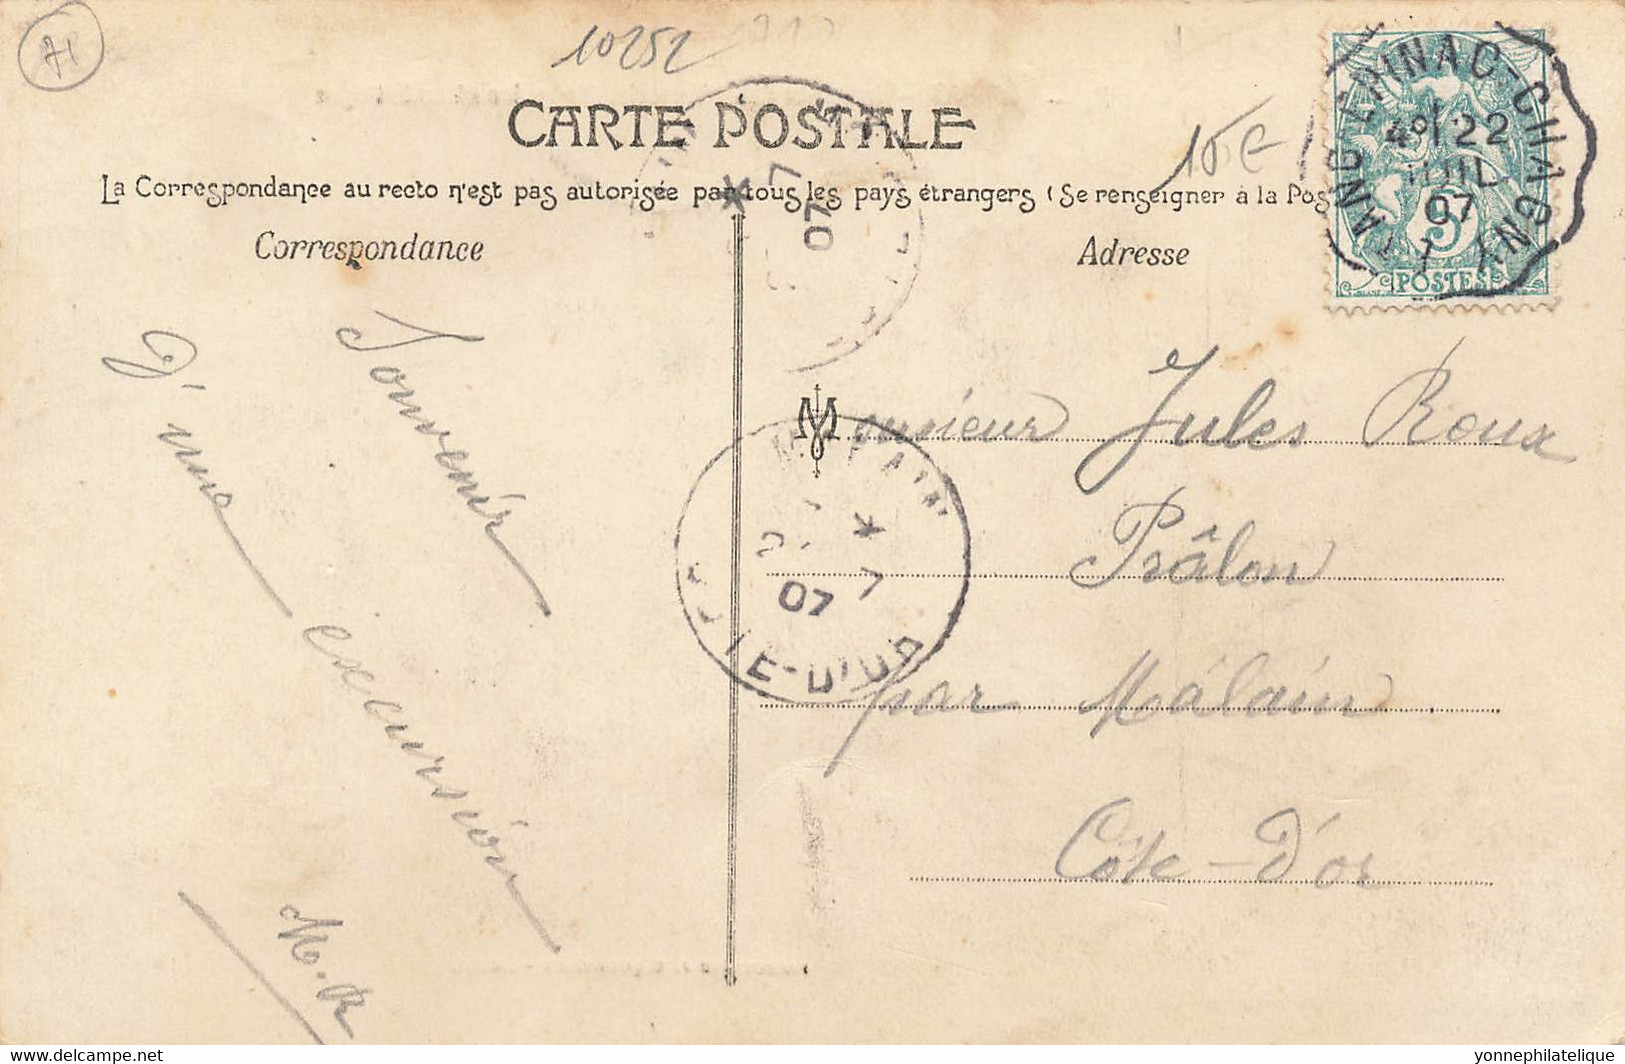 71
10252
CARTE POSTALE
15€
La Correspondance au recto n'est pas autorisée par tous les pays étrangers (Se renseigner à la Pos
Correspondance
Adresse
ETANG-EPINAC-CHAGNY
4º 22
JUIL
07
5
POSTES
7
07
Souvenir
d'une excursion
M. R
Monsieur Jules Roux
Prâlon
par Mâlain
Côte-d'or
MALAIN
7
07
COTE-D'OR
Delcampe.net
yonnephilatelie